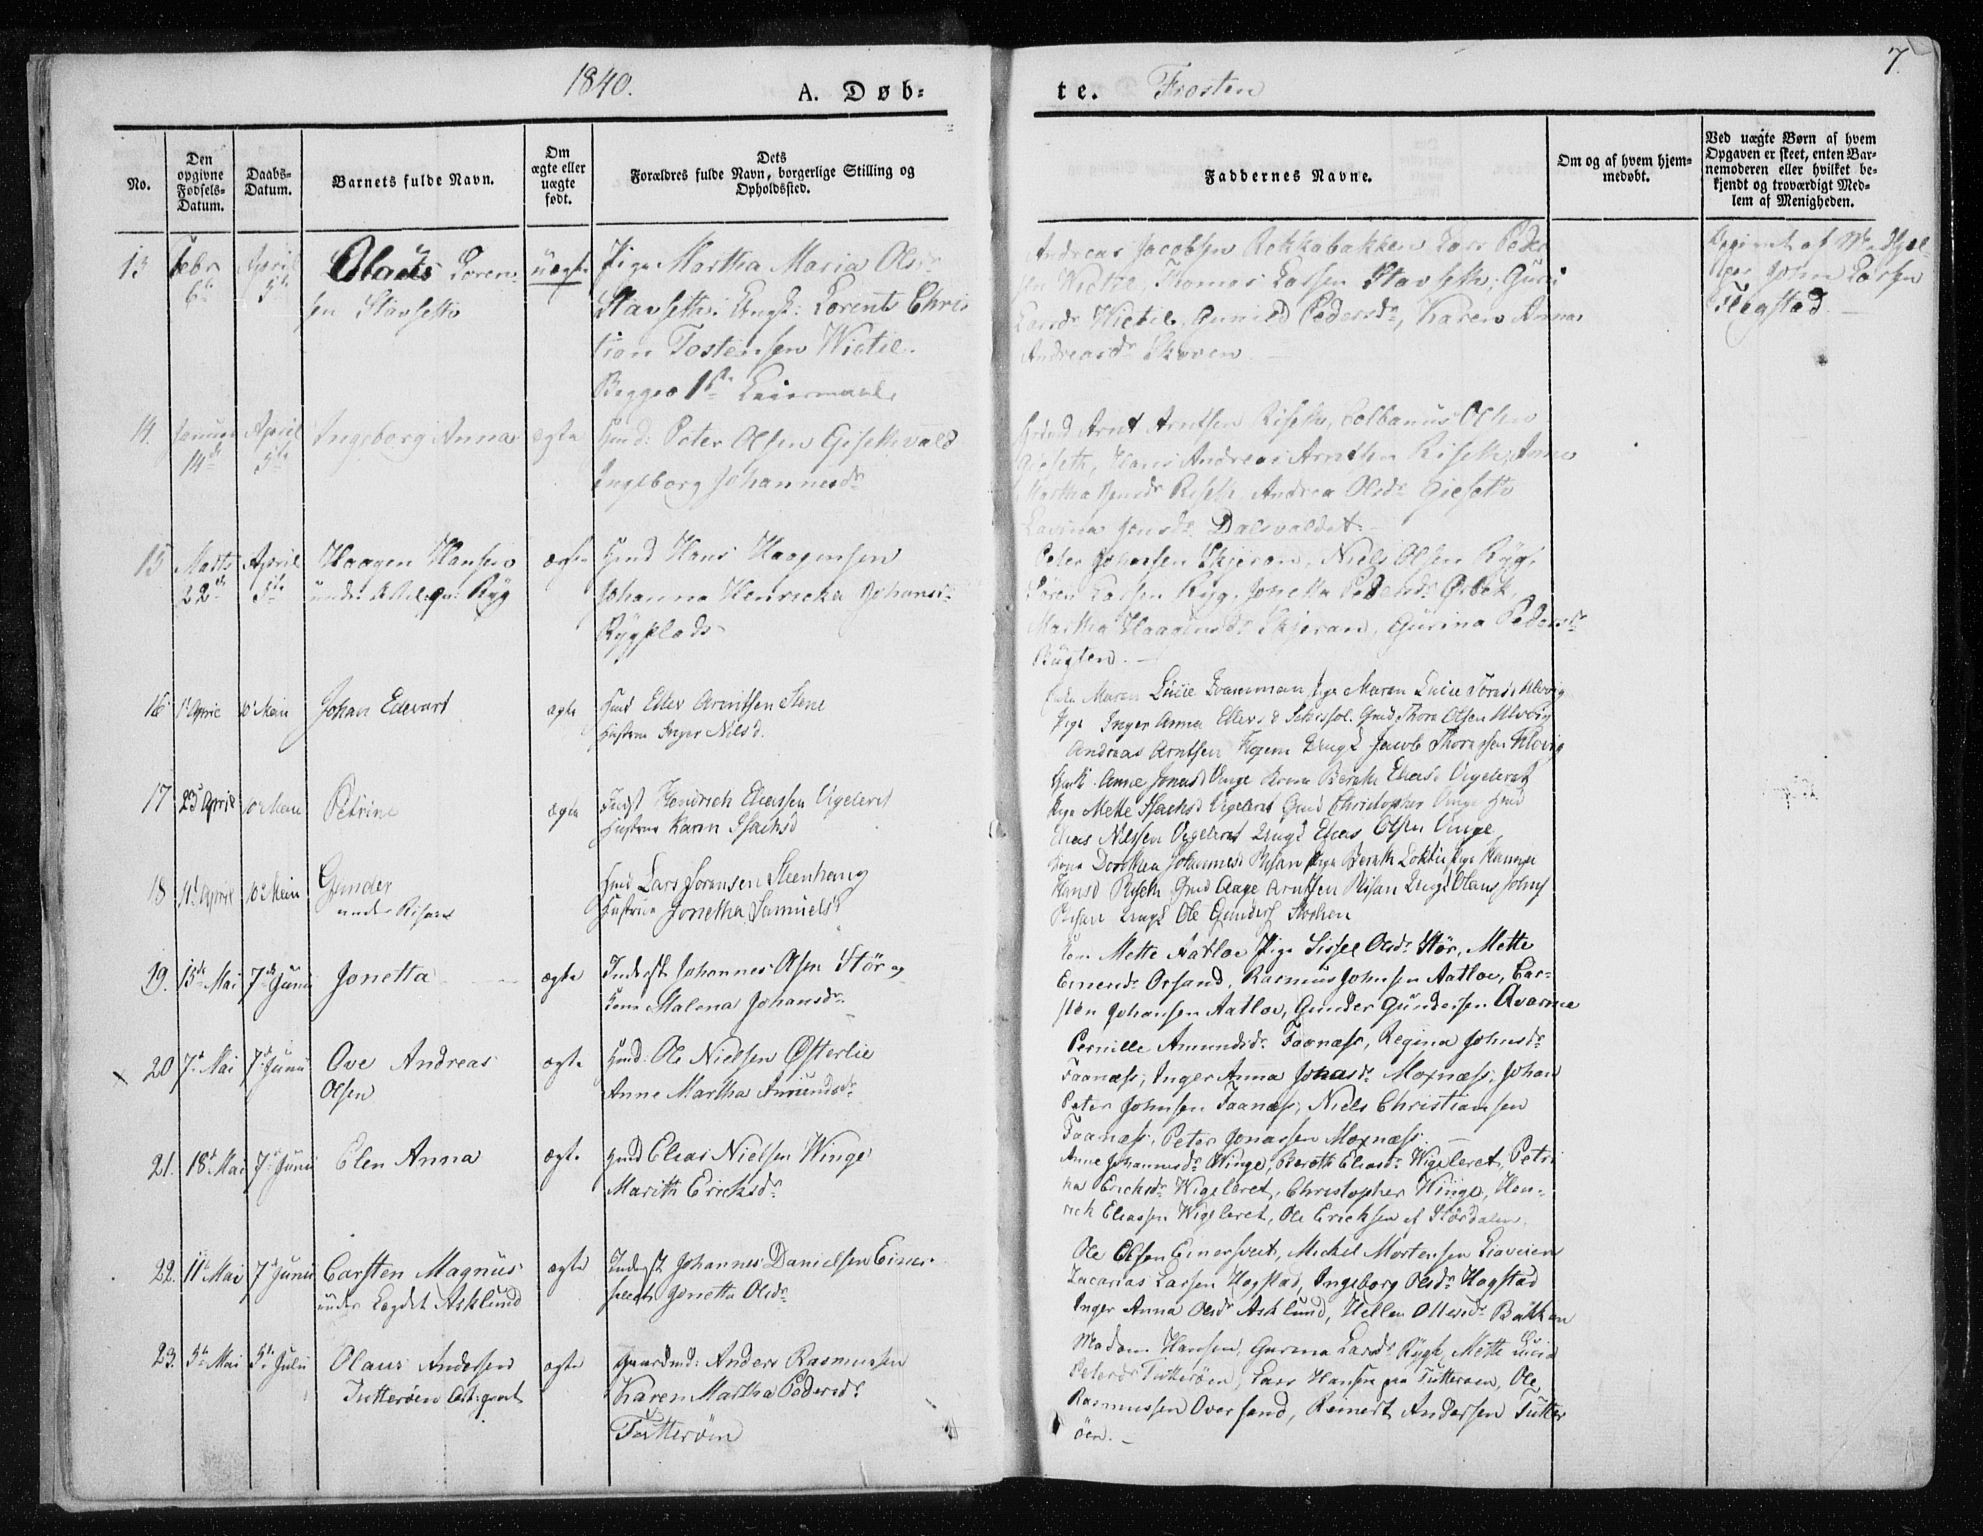 1840.
A. Døb-
te. Frosten
7.
No.
Den opgivne Fødsels-Datum.
Daabs-Datum.
Barnets fulde Navn.
Om ægte eller uægte født.
Dets
Forældres fulde Navn, borgerlige Stilling og
Opholdssted.
Faddernes Navne.
Om og af hvem hjem-
medøbt.
Ved uægte Børn af hvem
Opgaven er skeet, enten Bar-
nemoderen eller hvilket be-
kjendt og troværdigt Med-
lem af Menigheden.
13 Febr 6te April 5te Olaus Loren-
sen Stavseth
uægte
Pige Martha Maria Olsdr
Stavseth. Ungk: Lorents Chris
tian Tostensen Wictil.
Begges 1ste Leiermaal.
Andreas Jacobsen Rekkebakken Lars Peder
sen Wictil, Thomas Larsen Stavseth, Guri
Larsdr Wictil, Gunild Pedersdr, Karen Anna
Andreasdr Skoven.
Opgivet af Medhjel-
per John Larsen
Hegstad
14. Januar 14de April 5te
Ingeborg Anna
ægte
Gmd: Peter Olsen Giseth
Ingeborg Johannesdr
Arnt Arntsen Riseth, Olsen
Gieseth, Hans Andreas Arntsen Riseth, Anne
Martha Riseth, Andrea Olsdr Gieseth
Jonsdr Dalsvaldet.
15 Marts 22de April 5te
Haagen Hansen
under Ryg
ægte
Hmd Hans Haagensen
Johanna Henricka Johansdr
Rygplads
Peter Johansen Skjeran, Niels Olsen Ryg,
Søren Larsen Ryg, Jonetta Pedersdr
Martha Haagensdr Skjeran, Gurina Pedersdr
Bugten.
16 1 April 10 Maii
Johan Edevart
ægte
Gmd Eller Arentsen Stene
Hustrue Inger Nilsd.
Maren Lucie Pige Maren Lucie
Pige Inger Anna Ellersd Gmd Thore Olsen Ulvig
Andreas Arntsen Ungk Jacob Thoresen Ulvig
17 23 April 10 Maii
Petrine
ægte
Indst Hendrich Eliassen Vigeleret
Hustrue Karen Isachsd
Anne Jonasd Vinge Kone Bereth Eliasd Vigeleret
Pige Mette Isachsd Vigeleret Gmd Christopher Vinge Gmd
Elias Nilssen Vigeleret Ungk Elias Olsen Vinge,
18 4 April 10 Maii
Gunder
under Risan
Hmd Lars Sorensen Steenhaug
Hustrue Jonetha Samuelsd
Kone Dorthea Johannesd Risan Pige Bereth Pige Hanna
Hansd Riseth Gmd Aage Arntsen Risan Ungk Olaus Johns
Risan Ungk Ole Gunders
19. 15de Mai 7de Junii
Jonetta
ægte
Inderst Johannes Olsen Stör og
Kone Malena Johansdr
Kone Mette Aatloe Pige Sissel Olsdr Stör, Mette
Orsand, Rasmus Johnsen Aatloe, Car-
sten Johansen Aatloe, Gunder Gundersen Qvarme
20 7de Mai 7de Junii
Ove Andreas
Olsen
ægte
Hmd: Ole Nielsen Østerlie
Anne Martha Amundsdr
Pernille Amundsdr Faanæss, Regina Johnsdr
Faanæss, Inger Anna Jonasdr Moxnæss, Johan
Peter Johnsen Faanæss, Niels Christiansen
Faanæss, Peter Jonassen Moxnæss
21. 18de Mai 7de Junii
Elen Anna
ægte
Gmd Elias Nielsen Winge
Marith Ericksdr
Anne Johannesdr Winge, Bereth Eliasdr Wigeleret, Petri
na Ericksdr Wigeleret, Christopher Winge, Hen-
rich Eliassen Wigeleret, Ole Ericksen af Stördalen.
22. 11te Mai 7de Junii
Carsten Magnus
under Lægdet Asklund
ægte
Inderst Johannes Danielsen Einer
Jonetta Olsdr
Ole Olsen Einersveet, Mickel Mortensen
Zacarias Larsen Hogstad, Ingeborg Olsdr Hogstad
Inger Anna Olsdr Asklund, Hellen Ottersdr Bakken
23. 5te Mai 5te Julii
Olaus Andersen
Tutterøen
ægte
Gaardmd: Anders Rasmussen
Karen Martha Pedersdr
Tutterøen
Madam Hansen, Gurina Larsdr Rygh, Mette Lucia
Petersdr Tutterøen, Lars Hansen paa Tutterøen, Ole
Rasmussen Oversand, Reinert Andersen Tutter
øen.